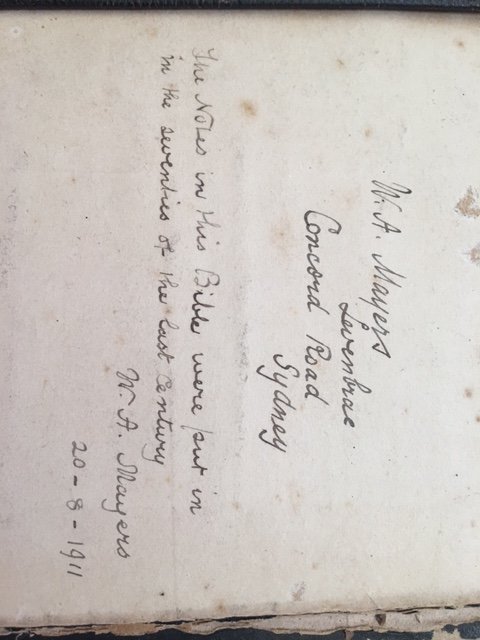 W. A. Mayers
Levenbrae
Concord Road
Sydney
The Notes in this Bible were put in
in the seventies of the last Century
W. A. Mayers
20-8-1911